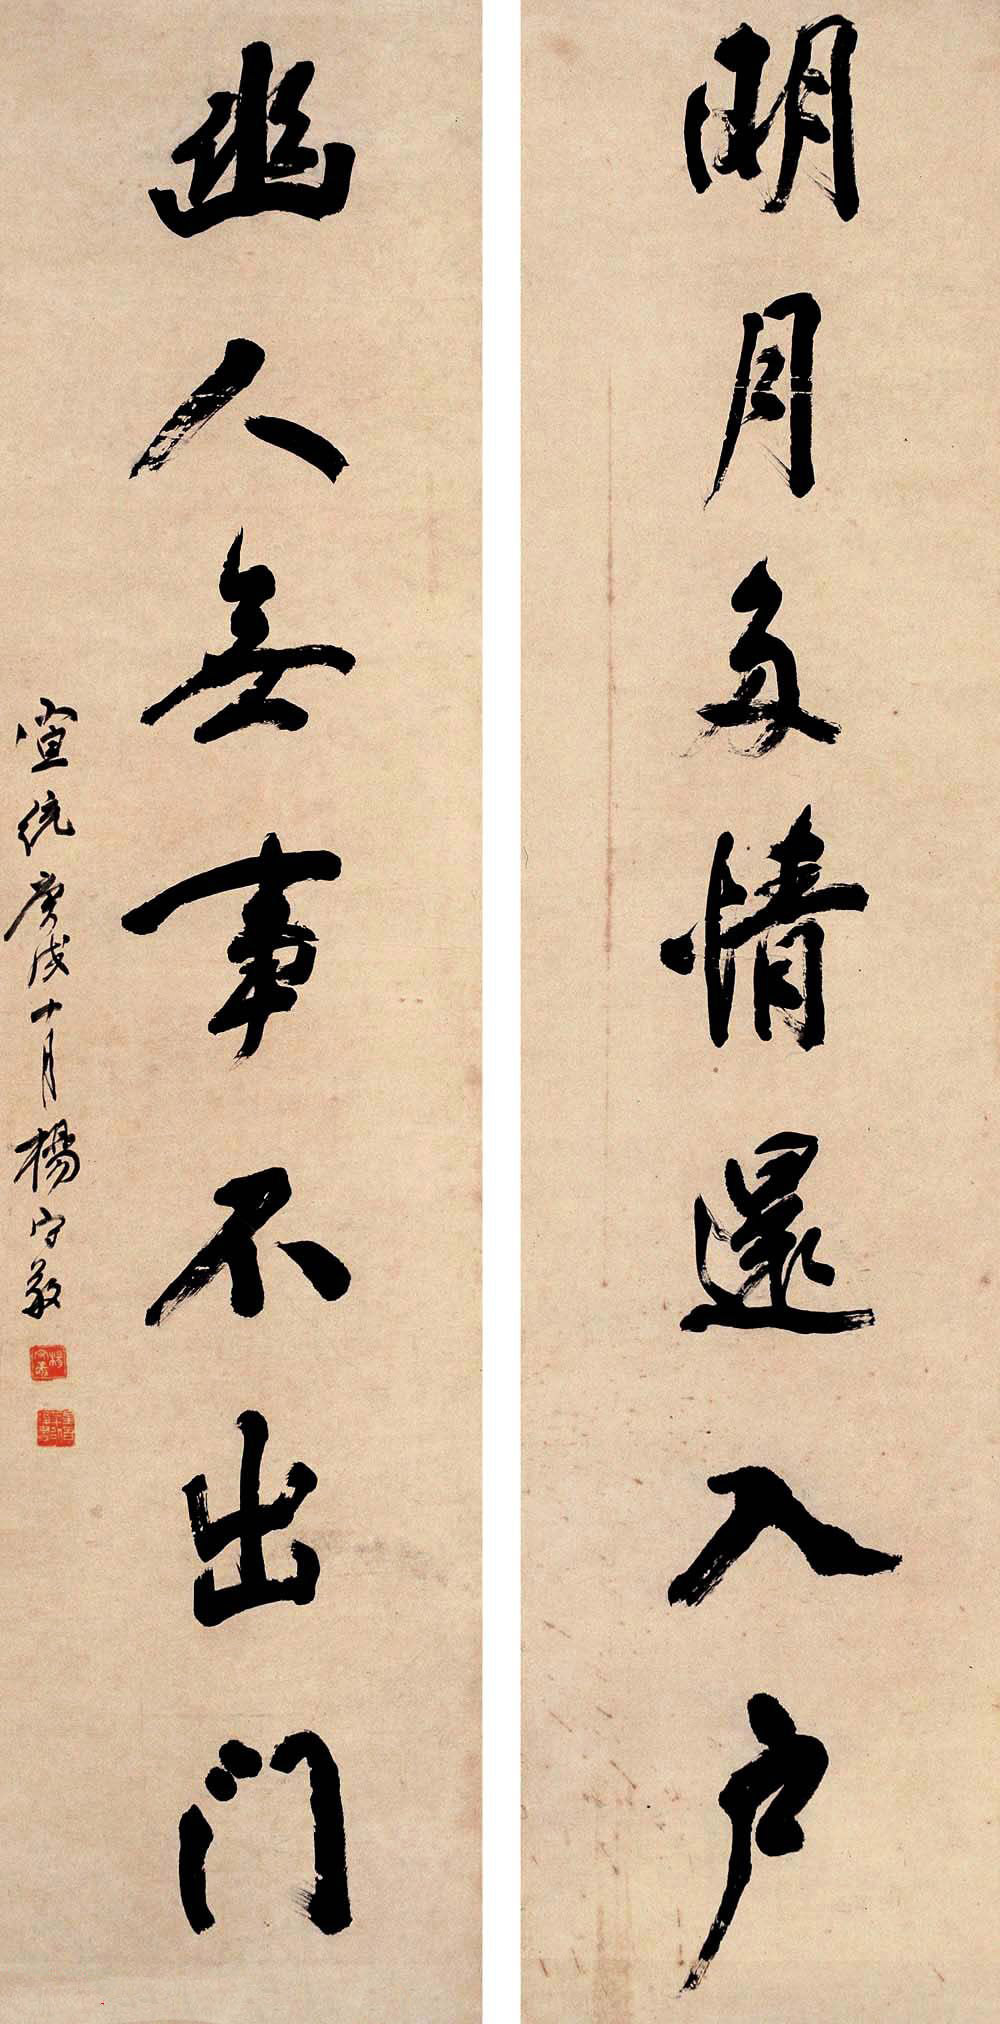 明月多情還入户
幽人無事不出门
宣統庚戌十月楊守敬